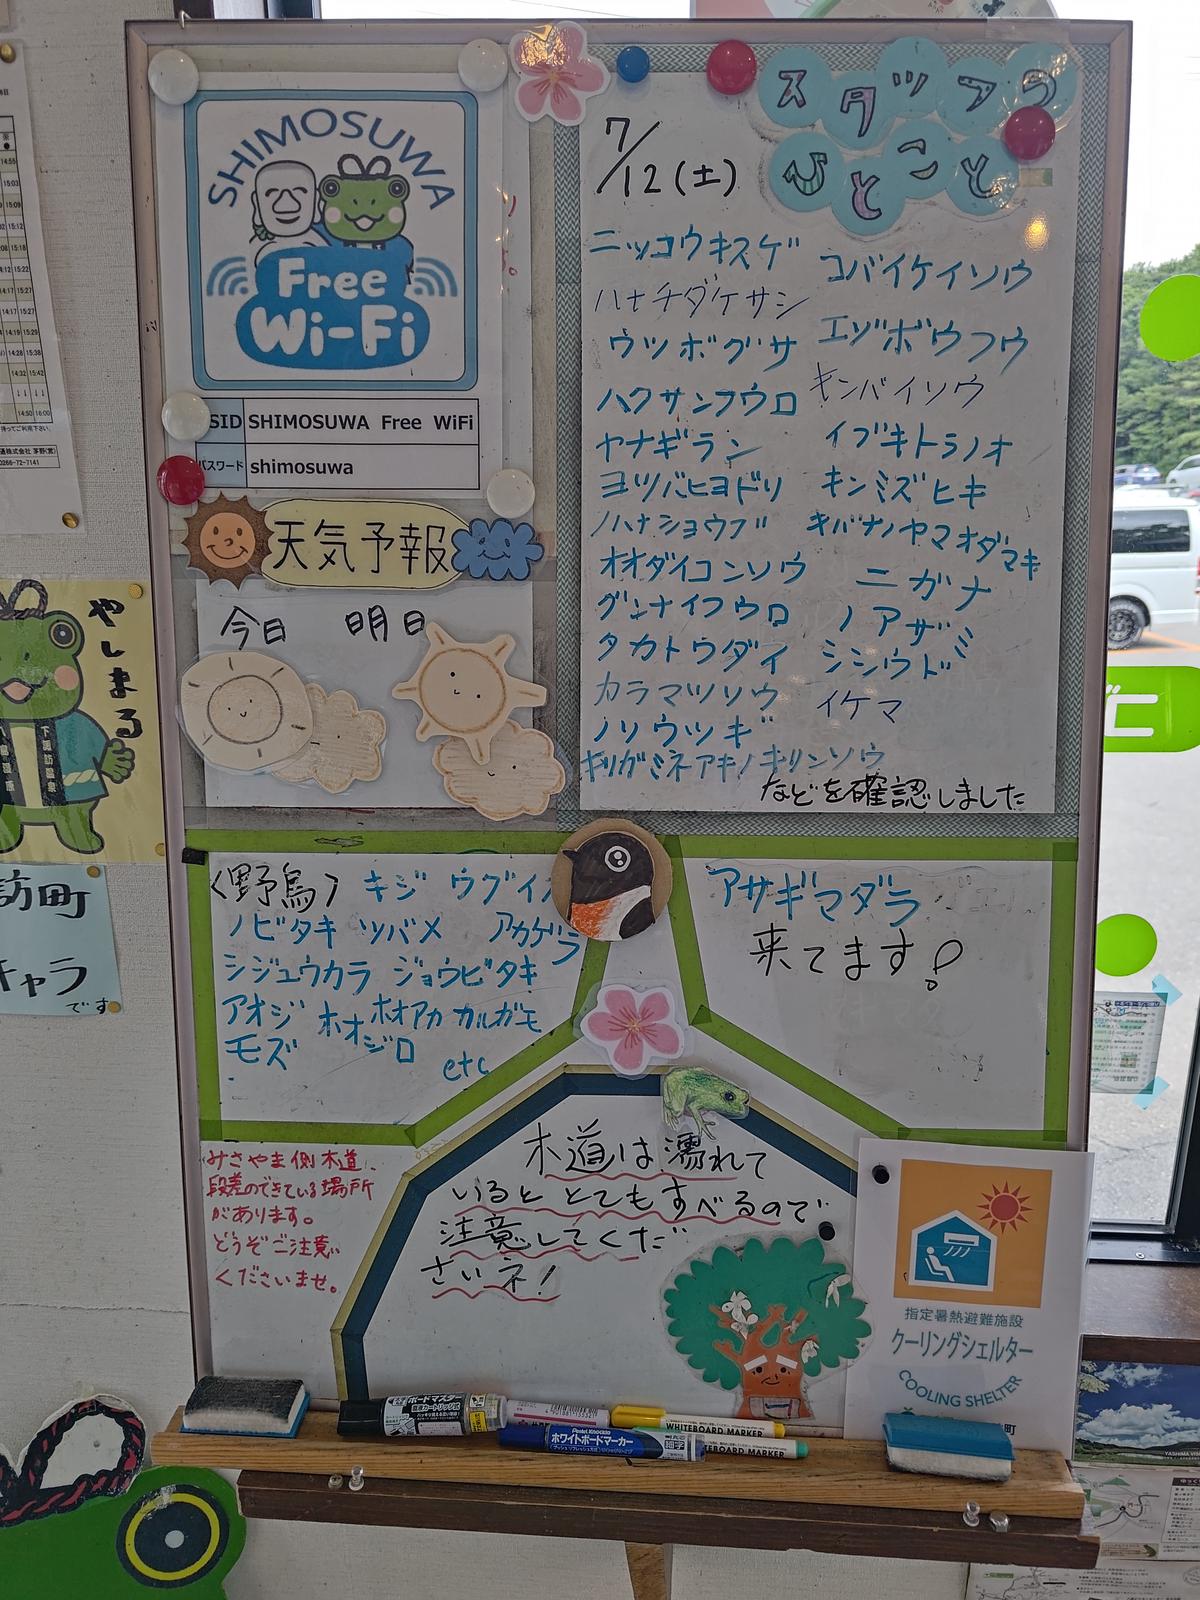 SHIMOSUWA
Free
Wi-Fi
SID SHIMOSUWA Free WiFi
パスワード shimosuwa
天気予報
今日 明日
スタッフの
ひとこと
7/12(土)
ニッコウキスゲ
ハナチダケサシ
ウツボグサ
ハクサンフウロ
ヤナギラン
ヨツバヒヨドリ
ノハナショウブ
オオダイコンソウ
グンナイフウロ
タカトウダイ
カラマツソウ
ノリウツギ
キリガミネアキノキリンソウ
コバイケイソウ
エゾボウフウ
キンバイソウ
イブキトラノオ
キンミズヒキ
キバナノヤマオダマキ
ニガナ
ノアザミ
シシウド
イケマ
などを確認しました
〈野鳥〉 キジ ウグイ
ノビタキ ツバメ アカゲラ
シジュウカラ ジョウビタキ
アオジ ホオジロ ホオアカ カルガモ
モズ etc
アサギマダラ
来てます!
みさやま側木道、
段差のできている場所
があります。
どうぞご注意
くださいませ。
木道は濡れて
いると とてもすべるので
注意してくだ
さいネ!
指定暑熱避難施設
クーリングシェルター
COOLING SHELTER
町
やしまる
下諏訪温泉
訪町
キャラ
です
ボードマスター
Pentel Knockle
ホワイトボードマーカー
WHITEBOARD MARKER
WHITEBOARD MARKER
0266-72-7141
に